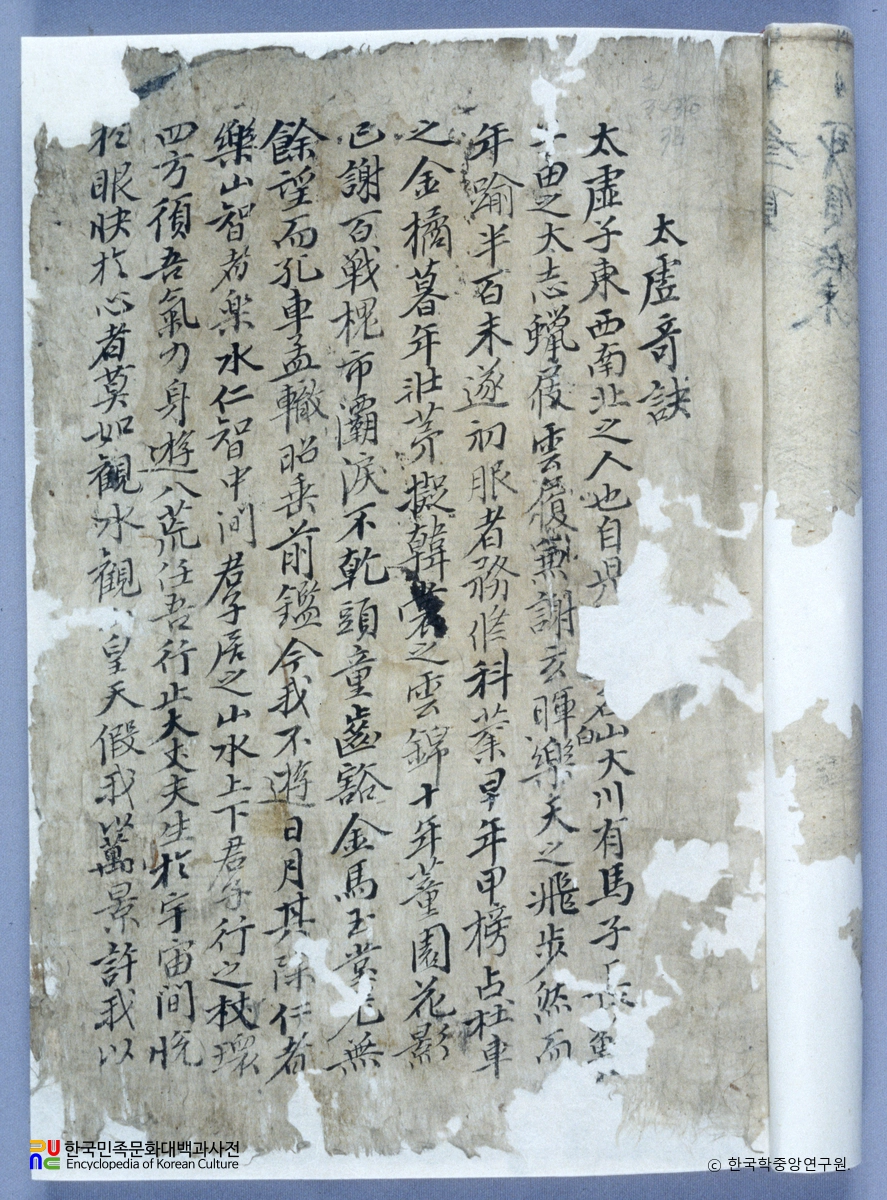 太虛奇訣
太虛子東西南北之人也自
名山大川有馬子
田之大志蠟屐雲履兼謝玄暉樂天之飛步然而
年踰半百未遂初服者務修科業早年甲榜占杜車
之金橘暮年壯茅擬韓裳之雲錦十年董園花影
已謝百戰槐市灞淚不乾頭童齒豁金馬玉堂无無
餘望而孔車孟轍昭垂前鑑今我不遊日月其除仁者
樂山智者樂水仁智中间君子居之山水上下君子行之杖環
四方須吾氣力身遊八荒任吾行止大丈夫生於宇宙間悅
於眼快於心者莫如觀水觀山皇天假我以萬景許我以
한국민족문화대백과사전
Encyclopedia of Korean Culture
© 한국학중앙연구원